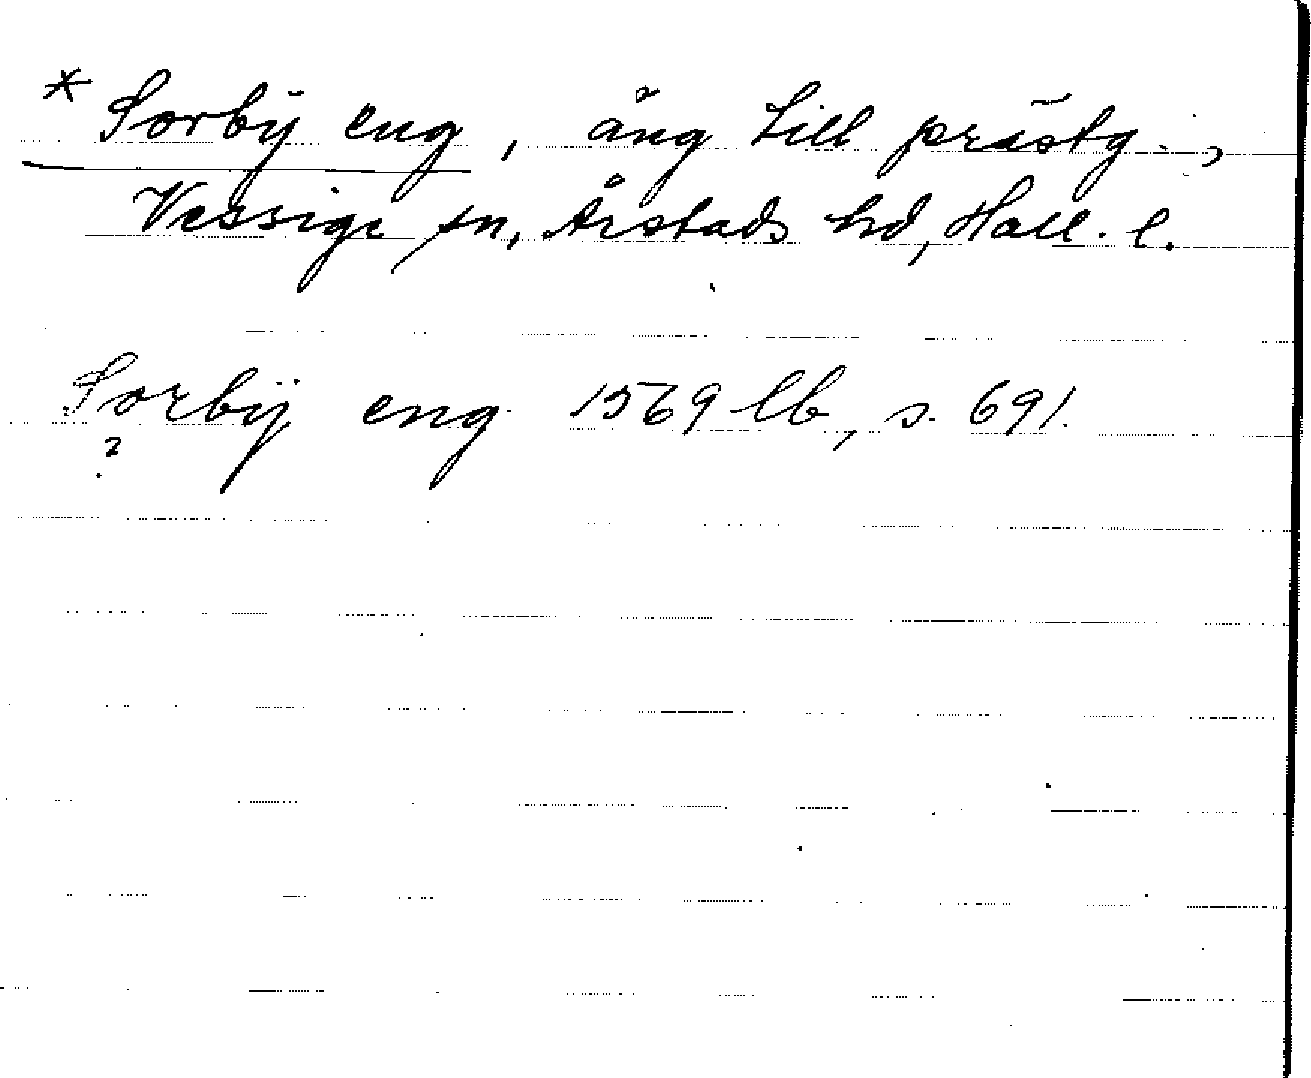 * Sorbÿ eng, äng till prästg.,
Vessige sn, Årstads hd, Hall. l.
Sorbÿ eng 1569 lb, s. 691.
?